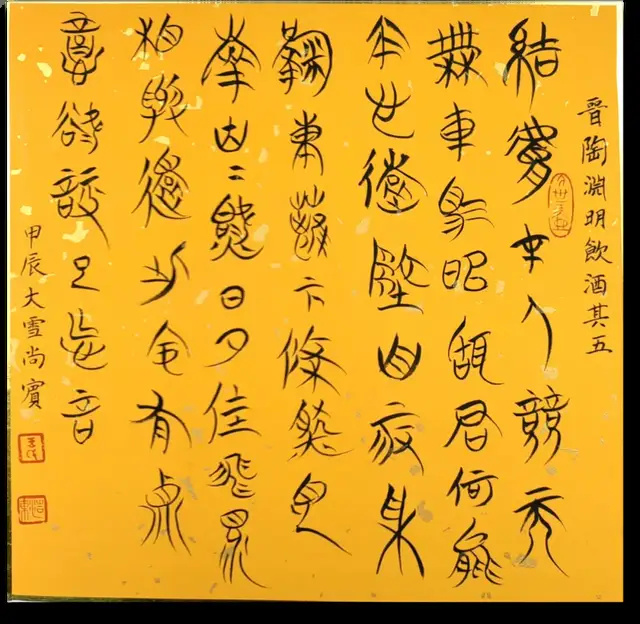 晉陶淵明飲酒其五
結廬在人境而
無車馬喧問君何能
尔心遠地自偏采
菊東籬下悠然見
南山〻氣日夕佳飛鳥
相與還此中有真
意欲辯已忘言
甲辰大雪尚賓